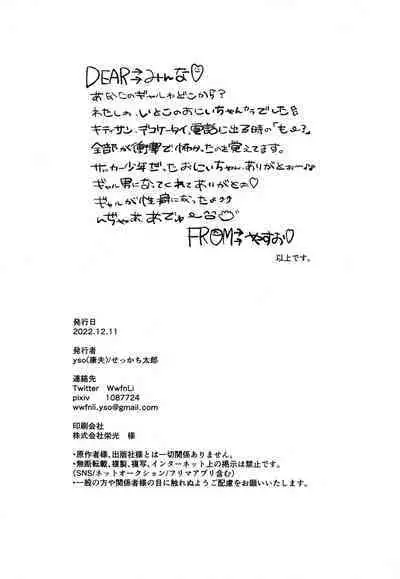 DEAR⇒みんな♡
あなたのギャルわどこから?
わたしわ、いとこのおにいちゃんカラでした
キティサン、デコケータイ、電話に出る時の「もし〜?」
全部が衝撃で、怖かったのと覚えてます。
サッカー少年だったおにいちゃん、ありがとぉー
ギャル男になってくれてありがとこ♡
ギャルが性癖になったよ
んぢゃぁね、あでゅ〜
FROM⇒やすお♡
以上です。
発行日
2022.12.11
発行者
yso(康夫)/せっかち太郎
連絡先
Twitter WwfnLi
pixiv 1087724
wwfnli.yso@gmail.com
印刷会社
株式会社栄光 様
・原作者様、出版社様とは一切関係ありません。
・無断転載、複製、複写、インターネット上の掲示は禁止です。
(SNS/ネットオークション/フリマアプリ含む)
・一般の方や関係者様の目に触れぬようご配慮をお願いいたします。